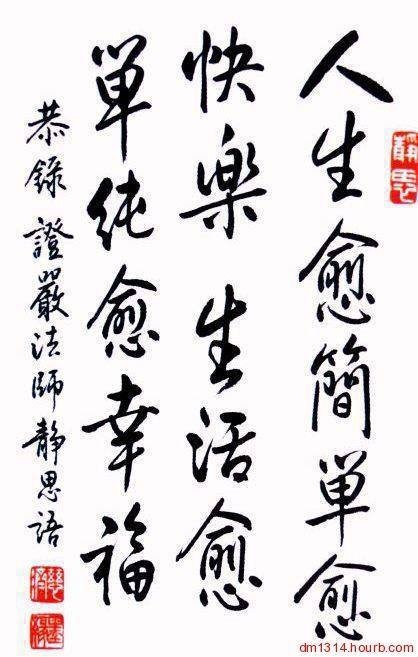 人生愈簡單愈
快樂 生活愈
單純愈幸福
恭錄 證嚴法師靜思語
dm1314.hourb.com